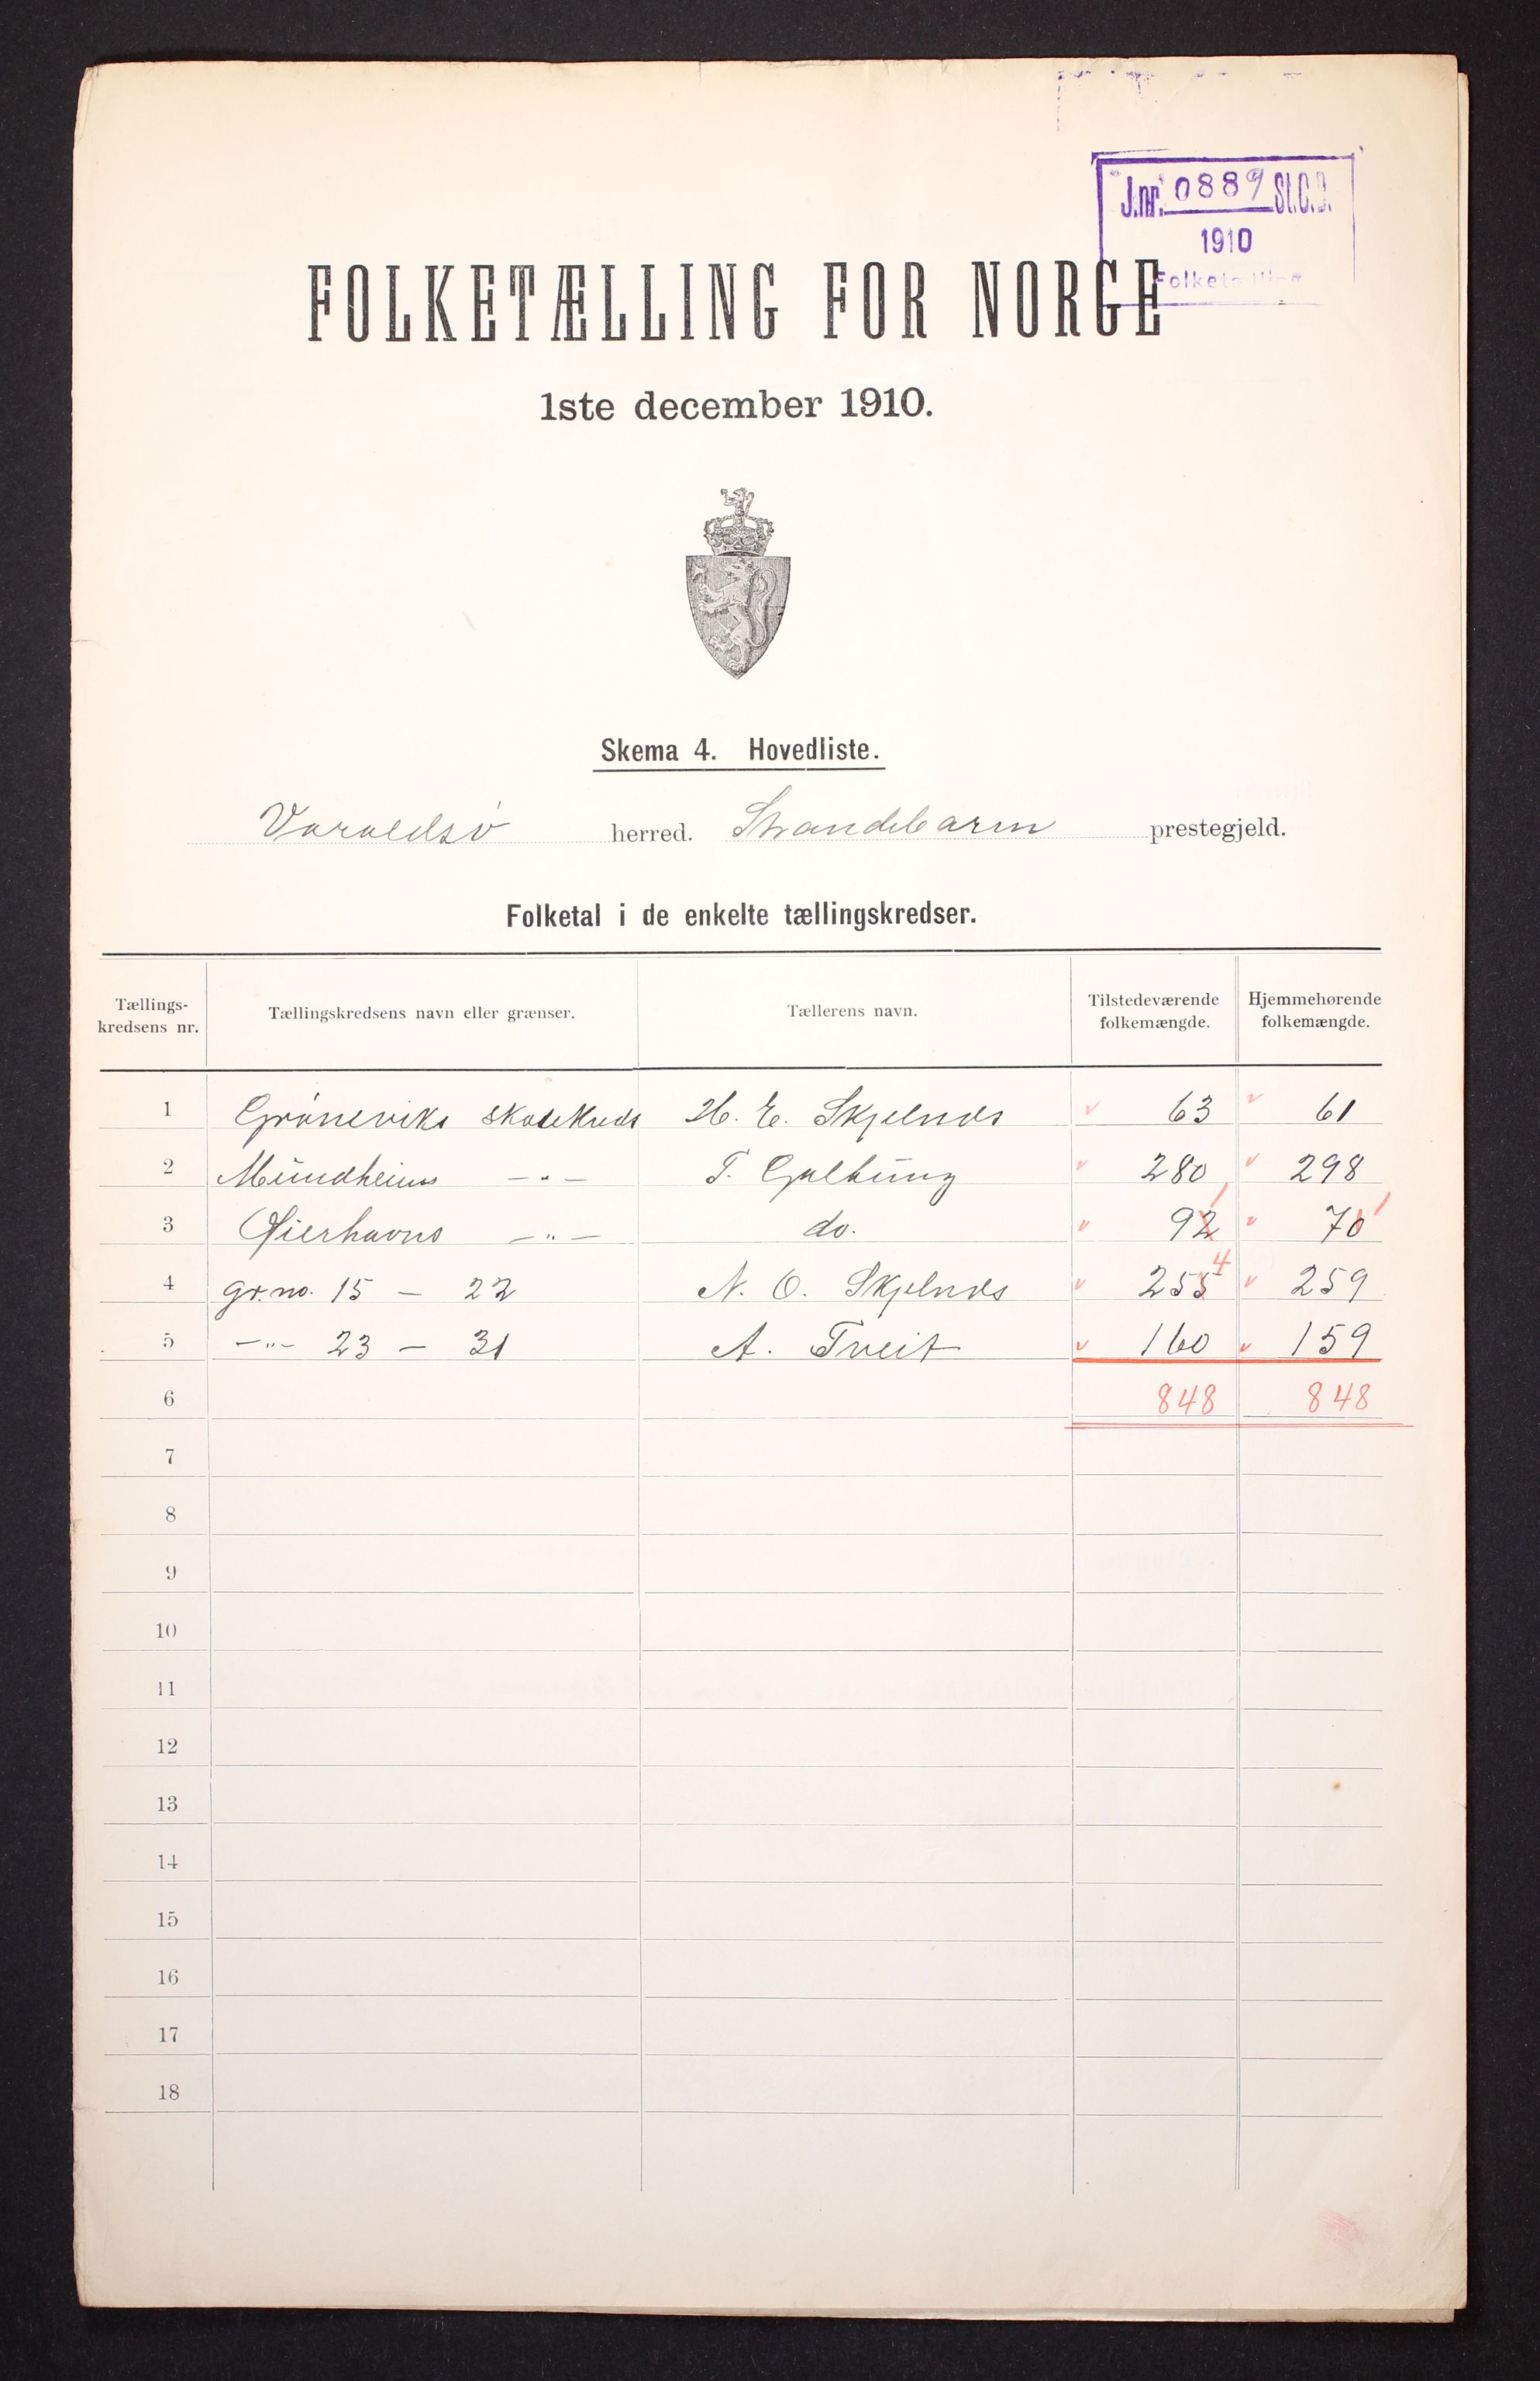 J.nr. 0889 St.C.B.
1910
Folketælling
FOLKETÆLLING FOR NORGE
1ste december 1910.
Skema 4. Hovedliste.
Varaldsö herred. Strandebarm prestegjeld.
Folketal i de enkelte tællingskredser.
Tællings-kredsens nr. Tællingskredsens navn eller grænser. Tællerens navn. Tilstedeværende folkemængde. Hjemmehørende folkemængde.
1 Gröneviks skolekreds H. E. Skjelnes v 63 v 61
2 Mundheims -"- T. Gjelhung v 280 v 298
3 Øierhavns -"- do. v 92 1 v 70 1
4 gr.no. 15 - 22 N. O. Skjelnes v 255 4 v 259
5 -"- 23 - 31 A. Tveit v 160 v 159
6 848 848
7
8
9
10
11
12
13
14
15
16
17
18